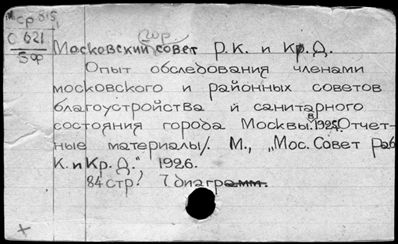 Ср 515
О 621
БФ
гор.
Московский совет Р. К. и Кр. Д.
Опыт обследования членами
московского и районных советов
благоустройства и санитарного
состояния города Москвы в 1925. Отчет-
ные материалы/. М., „Мос. Совет Раб
К. и Кр. Д." 1926.
84 стр. 7 диаграмм.